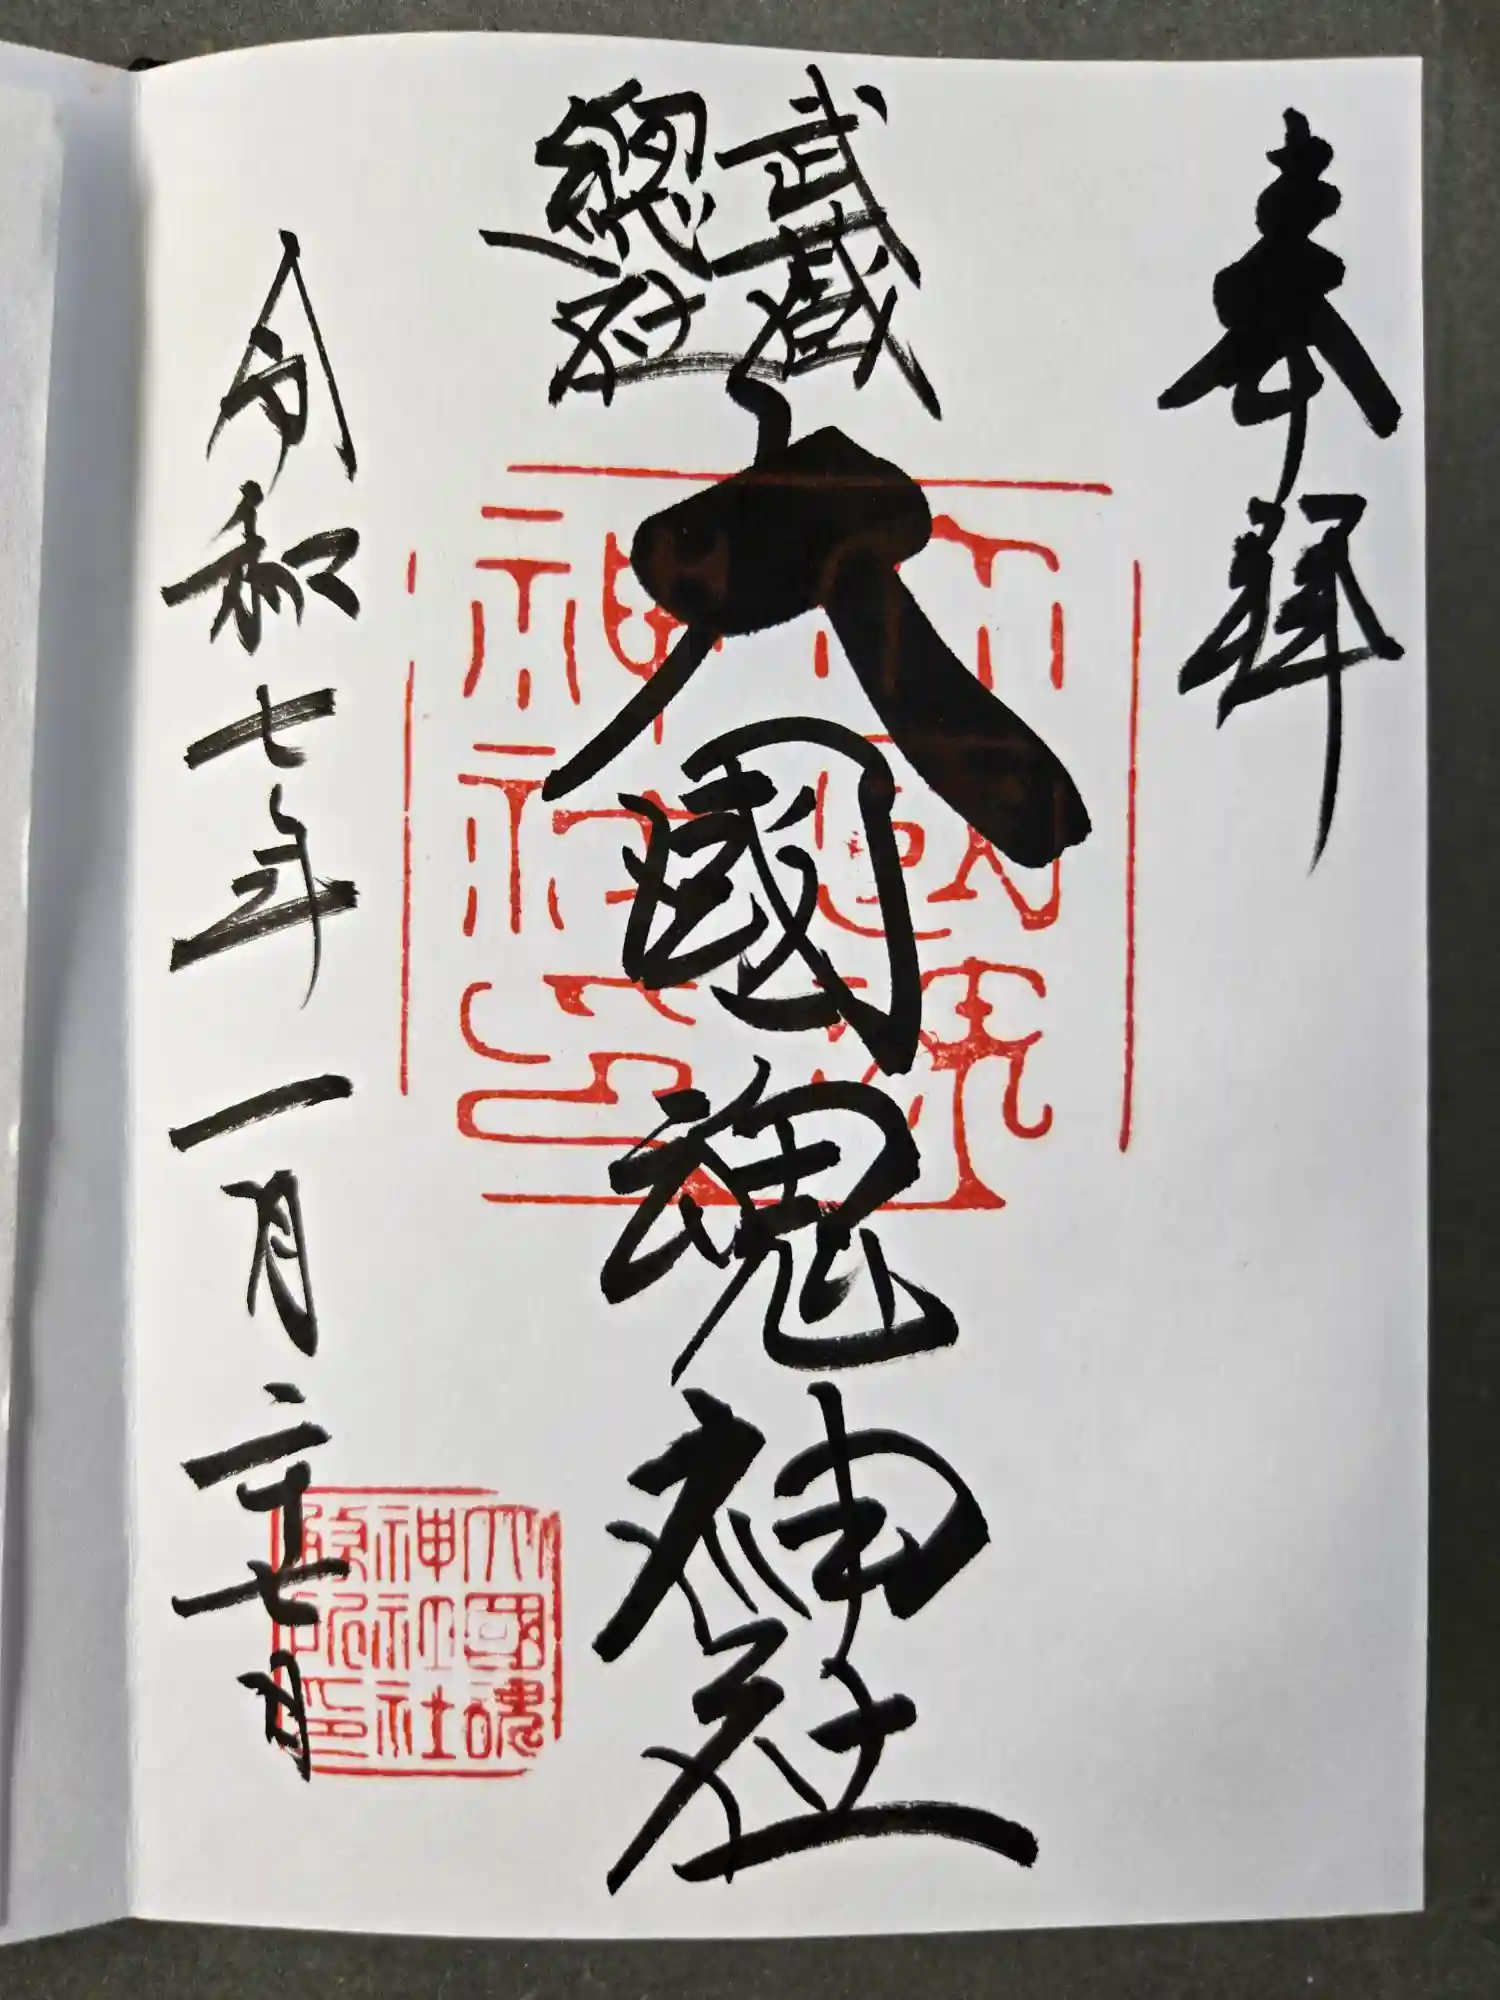 奉拝
武蔵
總社
大國魂神社
大國魂
神社社
務所印
令和七年一月二十七日